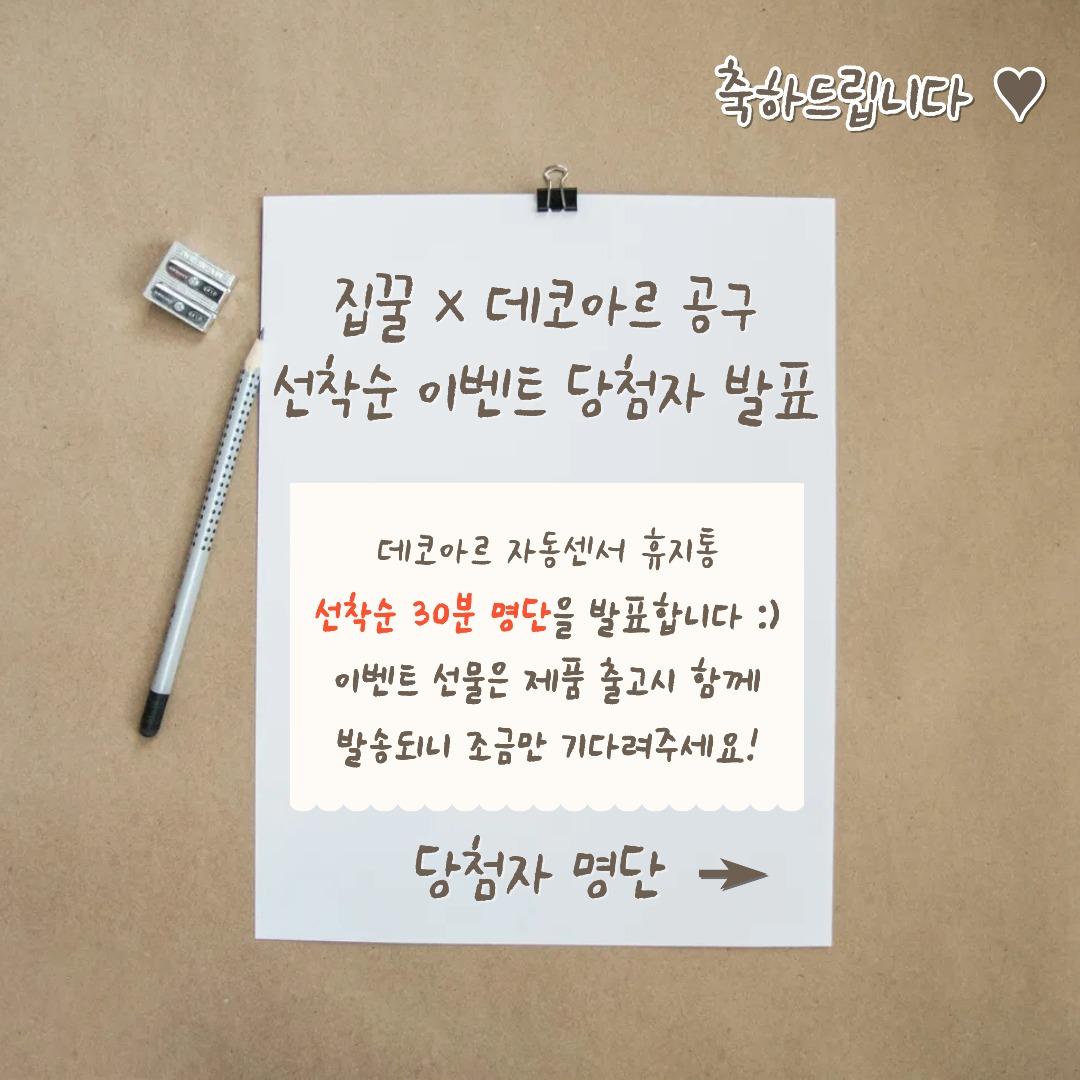 축하드립니다 ♥
집꿀 X 데코아르 공구
선착순 이벤트 당첨자 발표
데코아르 자동센서 휴지통
선착순 30분 명단을 발표합니다 :)
이벤트 선물은 제품 출고시 함께
발송되니 조금만 기다려주세요!
당첨자 명단 →